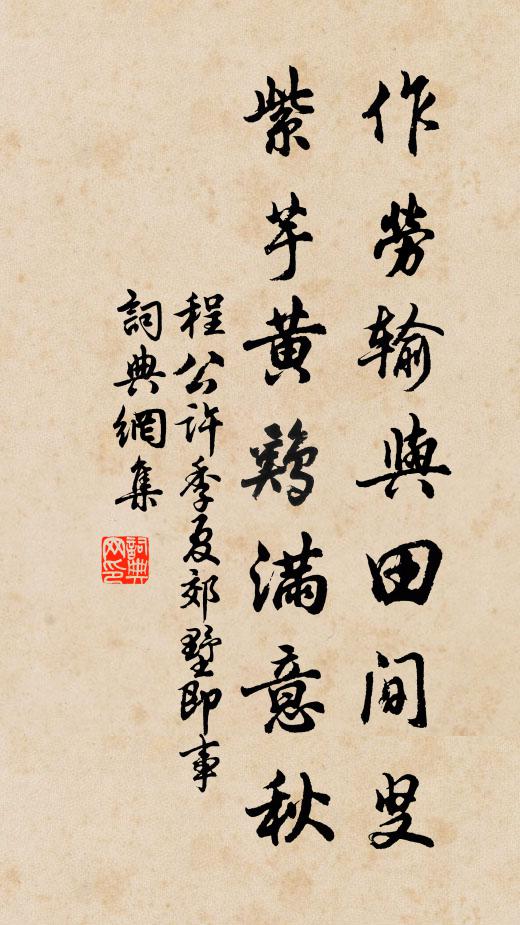 作勞输與田间叟
紫芋黄鷄满意秋
程公许季夏郊墅即事
詞典網集
詞典网印